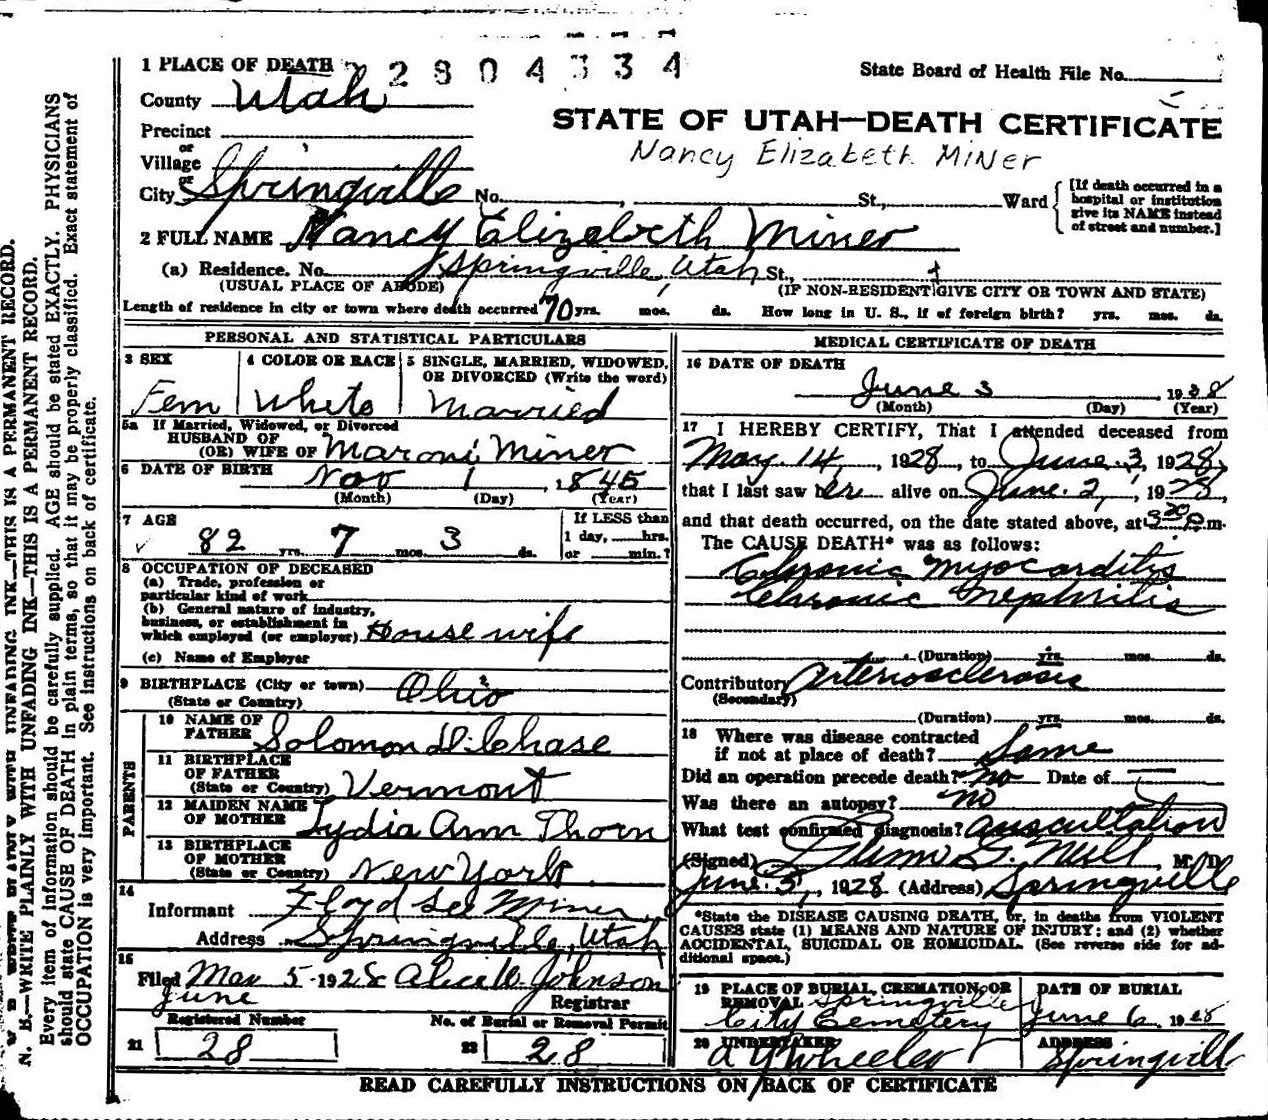 2 2 8 0 4 3 3 4
1 PLACE OF DEATH
State Board of Health File No.
County Utah
STATE OF UTAH—DEATH CERTIFICATE
Precinct
Nancy Elizabeth Miner
or
Village
or
City Springville No. , St., Ward
[If death occurred in a
hospital or institution
give its NAME instead
of street and number.]
2 FULL NAME Nancy Elizabeth Miner
(a) Residence. No. Springville, Utah St.,
(USUAL PLACE OF ABODE) (IF NON-RESIDENT GIVE CITY OR TOWN AND STATE)
Length of residence in city or town where death occurred 70 yrs. mos. ds. How long in U. S., if of foreign birth? yrs. mos. ds.
PERSONAL AND STATISTICAL PARTICULARS
3 SEX
Fem
4 COLOR OR RACE
White
5 SINGLE, MARRIED, WIDOWED,
OR DIVORCED (Write the word)
Married
5a If Married, Widowed, or Divorced
HUSBAND OF
(OR) WIFE OF Maroni Miner
6 DATE OF BIRTH Nov 1, 1845
(Month) (Day) (Year)
7 AGE
82 yrs. 7 mos. 3 ds.
If LESS than
1 day, hrs.
or min.?
8 OCCUPATION OF DECEASED
(a) Trade, profession or
particular kind of work
(b) General nature of industry,
business, or establishment in
which employed (or employer) House wife
(c) Name of Employer
9 BIRTHPLACE (City or town) Ohio
(State or Country)
PARENTS
10 NAME OF
FATHER Solomon D. Chase
11 BIRTHPLACE
OF FATHER
(State or Country) Vermont
12 MAIDEN NAME
OF MOTHER Lydia Ann Thorn
13 BIRTHPLACE
OF MOTHER
(State or Country) New York
14
Informant Floyd Lee Miner
Address Springville, Utah
15
Filed May 5 - 1928 Alice W. Johnson
June Registrar
Registered Number
21 28
No. of Burial or Removal Permit
22 28
MEDICAL CERTIFICATE OF DEATH
16 DATE OF DEATH
June 3, 1928
(Month) (Day) (Year)
17 I HEREBY CERTIFY, That I attended deceased from
May 14, 1928, to June 3, 1928,
that I last saw her alive on June 2, 1928,
and that death occurred, on the date stated above, at 3 30 P.m.
The CAUSE DEATH* was as follows:
Chronic Myocarditis
Chronic Nephritis
(Duration) yrs. mos. ds.
Contributory Arteriosclerosis
(Secondary)
(Duration) yrs. mos. ds.
18 Where was disease contracted
if not at place of death? Same
Did an operation precede death? no Date of —
Was there an autopsy? no
What test confirmed diagnosis? auscultation
(Signed) G. M. D.
June 5, 1928 (Address) Springville
*State the DISEASE CAUSING DEATH, or, in deaths from VIOLENT
CAUSES state (1) MEANS AND NATURE OF INJURY; and (2) whether
ACCIDENTAL, SUICIDAL OR HOMICIDAL. (See reverse side for ad-
ditional space.)
19 PLACE OF BURIAL, CREMATION, OR
REMOVAL Springville
City Cemetery
DATE OF BURIAL
June 6, 1928
20 UNDERTAKER
A Y Wheeler
ADDRESS
Springvill
READ CAREFULLY INSTRUCTIONS ON BACK OF CERTIFICATE
N. B.—WRITE PLAINLY WITH UNFADING INK—THIS IS A PERMANENT RECORD.
Every item of information should be carefully supplied. AGE should be stated EXACTLY. PHYSICIANS
should state CAUSE OF DEATH in plain terms, so that it may be properly classified. Exact statement of
OCCUPATION is very important. See instructions on back of certificate.